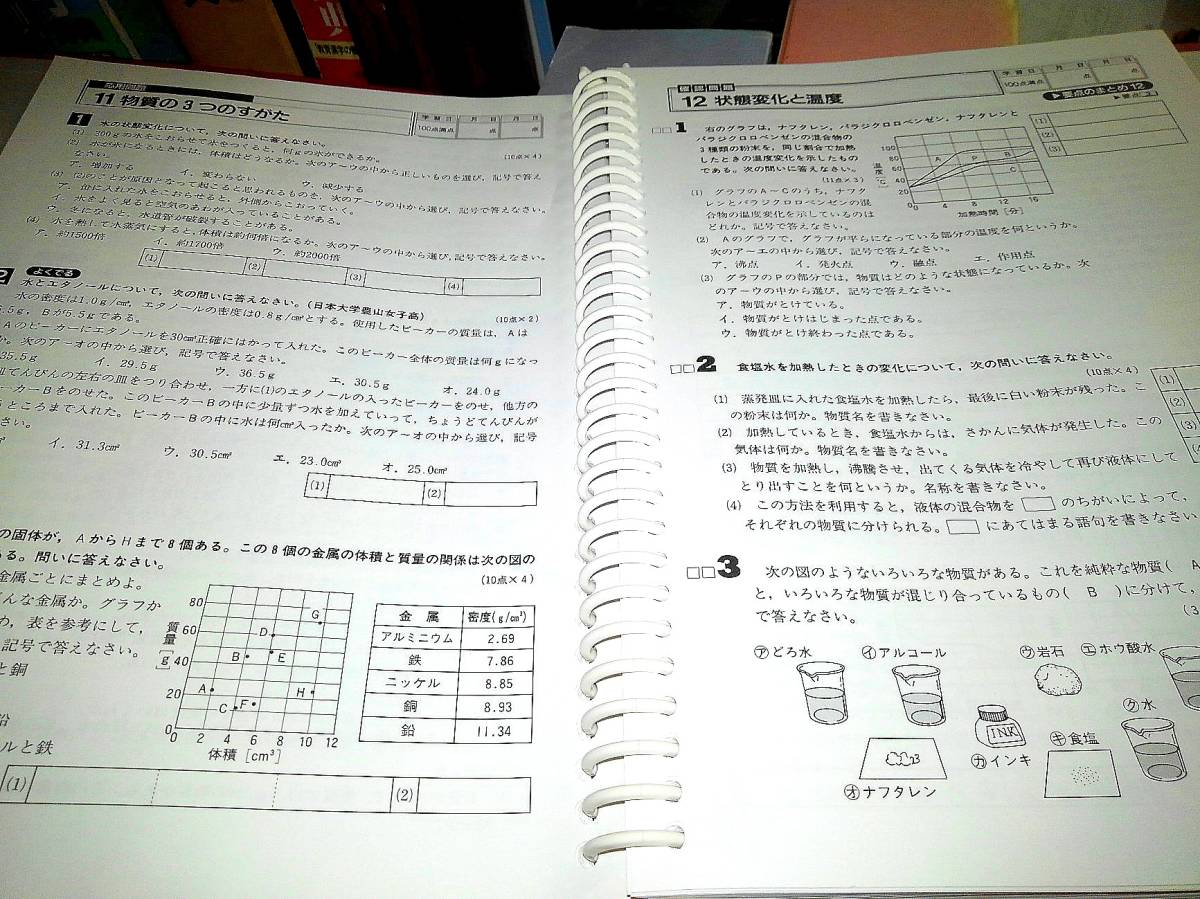 応用問題
11 物質の3つのすがた
学習日 月 日 月 日
100点満点 点 点
1 水の状態変化について,次の問いに答えなさい。
(10点×4)
(1) 300gの水をこおらせて氷をつくると,何gの氷ができるか。
(2) 水が氷になるときには,体積はどうなるか。次のア〜ウの中から正しいものを選び,記号で答え
なさい。
ア.増加する イ.変わらない ウ.減少する
(3) (2)のことが原因となって起こると思われるものを,次のア〜ウの中から選び,記号で答えなさい。
ア.缶に入れた水をこおらせると,外側からこおっていく。
イ.氷をよく見ると空気のあわが入っていることがある。
ウ.冬になると,水道管が破裂することがある。
(4) 水を熱して水蒸気にすると,体積は約何倍になるか。次のア〜ウの中から選び,記号で答えなさい。
ア.約1500倍 イ.約1700倍 ウ.約2000倍
(1) (2) (3) (4)
2 よくでる
水とエタノールについて,次の問いに答えなさい。(日本大学豊山女子高)
(10点×2)
水の密度は1.0g/cm³,エタノールの密度は0.8g/cm³とする。使用したビーカーの質量は,Aは
.5g,Bが5.5gである。
Aのビーカーにエタノールを30cm³正確にはかって入れた。このビーカー全体の質量は何gになっ
か。次のア〜オの中から選び,記号で答えなさい。
35.5g イ.29.5g ウ.36.5g エ.30.5g オ.24.0g
てんびんの左右の皿をつり合わせ,一方に(1)のエタノールの入ったビーカーをのせ,他方の
ーカーBをのせた。このビーカーBの中に少量ずつ水を加えていって,ちょうどてんびんが
ところまで入れた。ビーカーBの中に水は何cm³入ったか。次のア〜オの中から選び,記号
さい。
イ.31.3cm³ ウ.30.5cm³ エ.23.0cm³ オ.25.0cm³
(1) (2)
の固体が,AからHまで8個ある。この8個の金属の体積と質量の関係は次の図の
る。問いに答えなさい。
(10点×4)
金属ごとにまとめよ。
んな金属か。グラフか
め,表を参考にして,
記号で答えなさい。
と銅
鉛
ルと鉄
質量[g]
80
60
40
20
0
0 2 4 6 8 10 12
体積[cm³]
A B C D E F G H
金属 密度(g/cm³)
アルミニウム 2.69
鉄 7.86
ニッケル 8.85
銅 8.93
鉛 11.34
(1) (2)
確認問題
12 状態変化と温度
学習日 月 日 月 日
100点満点 点 点
▶要点のまとめ12
□□1 右のグラフは,ナフタレン,パラジクロロベンゼン,ナフタレンと
パラジクロロベンゼンの混合物の
3種類の粉末を,同じ割合で加熱
したときの温度変化を示したもの
である。次の問いに答えなさい。
(11点×3)
(1) グラフのA〜Cのうち,ナフタ
レンとパラジクロロベンゼンの混
合物の温度変化を示しているのは
どれか。記号で答えなさい。
(2) Aのグラフで,グラフが平らになっている部分の温度を何というか。
次のア〜エの中から選び,記号で答えなさい。
ア.沸点 イ.発火点 ウ.融点 エ.作用点
(3) グラフのPの部分では,物質はどのような状態になっているか。次
のア〜ウの中から選び,記号で答えなさい。
ア.物質がとけている。
イ.物質がとけはじまった点である。
ウ.物質がとけ終わった点である。
温度[℃]
100
80
60
40
20
0
0 4 8 12 16
加熱時間[分]
A P B C
(1)
(2)
(3)
□□2 食塩水を加熱したときの変化について,次の問いに答えなさい。
(10点×4)
(1) 蒸発皿に入れた食塩水を加熱したら,最後に白い粉末が残った。こ
の粉末は何か。物質名を書きなさい。
(2) 加熱しているとき,食塩水からは,さかんに気体が発生した。この
気体は何か。物質名を書きなさい。
(3) 物質を加熱し,沸騰させ,出てくる気体を冷やして再び液体にして
とり出すことを何というか。名称を書きなさい。
(4) この方法を利用すると,液体の混合物を□のちがいによって,
それぞれの物質に分けられる。□にあてはまる語句を書きなさい
(1)
(2)
(3)
□□3 次の図のようないろいろな物質がある。これを純粋な物質( A
と,いろいろな物質が混じり合っているもの( B )に分けて,
で答えなさい。
(3
㋐どろ水 ㋑アルコール ㋒岩石 ㋓ホウ酸水
㋗水
INK
㋔ナフタレン ㋕インキ ㋖食塩